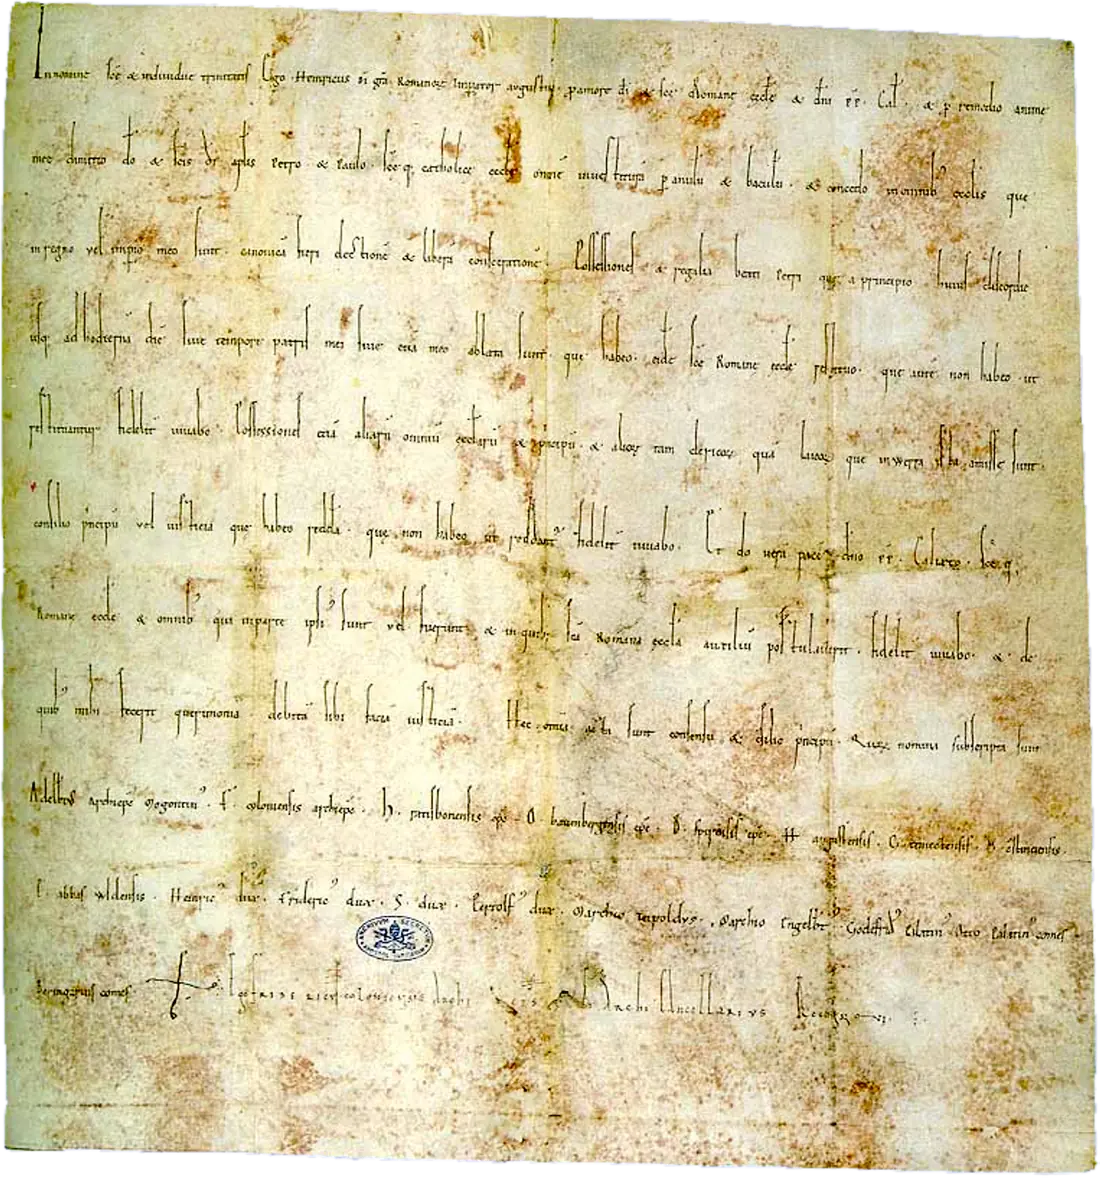 In nomine sc̄e & individue trinitatis Ego Heinricus di grā Romanoꝝ Imperator augustus p amore di & sc̄e Romane eccłe & dn̄i pp Cal. & p remedio anime
mee dimitto do & sc̄is di apłis Petro & Paulo sc̄eq; catholice eccłe omnē investiturā p anulū & baculū & concedo in omnib; eccłiis que
in regno vel impio meo sunt canonicā fieri electionē & liberā consecrationē. Possessiones & regalia beati Petri que a principio huius discordie
usq; ad hodiernā diē sive tempore patris mei sive etiā meo ablata sunt que habeo eidē sc̄e Romane eccłe restituo que autē non habeo ut
restituantur fidelit̄ iuvabo. Possessiones etiā aliarū omniū eccłarū & p̄ncipū & alioꝝ tam clericoꝝ quā laicoꝝ que in werra ista amisse sunt
consilio p̄ncipū vel iusticia que habeo reddā que non habeo ut reddant᾽ fidelit̄ iuvabo. Et do verā pacē dn̄o pp Calixto sc̄eq;
Romane eccłe & omnib; qui in parte ipsi᾽ sunt vel fuerunt & in quib; sc̄a Romana eccła auxiliū postulaverit fidelit̄ iuvabo & de
quib; mihi fecerit querimoniā debitā sibi faciā iusticiā. Hec omīa acta sunt consensu & c̄silio p̄ncipū. Quoꝝ nomina subscripta sunt
Adelbt᾽ archiep̄c Mogontin᾽. F. coloniensis archiep̄c. H. ratisbonensis ep̄c. O bauenbergensis ep̄c. B. spirensis ep̄c. H augustensis. G. traiectensis. O. c̄stanciensis.
E. abbas wldensis. Heinric᾽ dux. Frideric᾽ dux. S. dux. Pertolf᾽ dux. Marchio teipoldus. Marchio Engelbt᾽. Godefrid᾽ Palatin᾽. Otto Palatin᾽ comes
Beringarius comes
Fridericus coloniensis archieps & archicancellarius Recognovi
ARCHIVVM SECRETVM